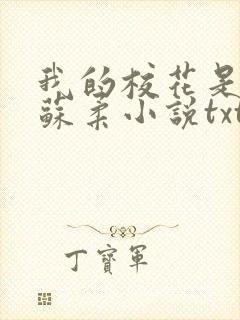 我的校花是
蘇柔小說txt
丁寶軍